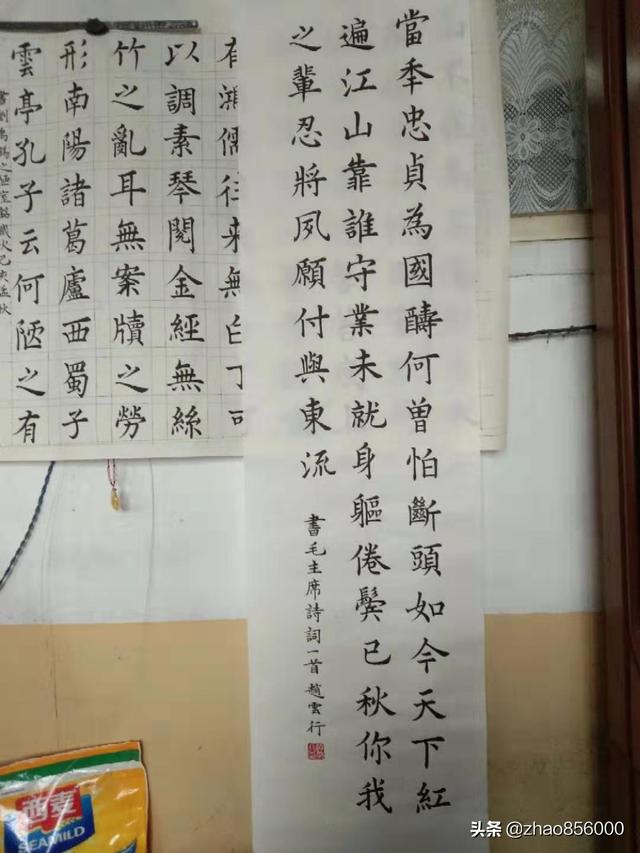 當秊忠貞為國醻何曾怕斷頭如今天下紅
遍江山靠誰守業未就身軀倦鬓已秋你我
之輩忍將夙願付與東流
書毛主席詩詞一首趙雲行
有鴻儒往来無白丁可
以調素琴閱金經無絲
竹之亂耳無案牘之勞
形南陽諸葛廬西蜀子
雲亭孔子云何陋之有
書劉禹錫之陋室銘歲次己亥孟秋
西麦
SEAMILD
头条 @zhao856000